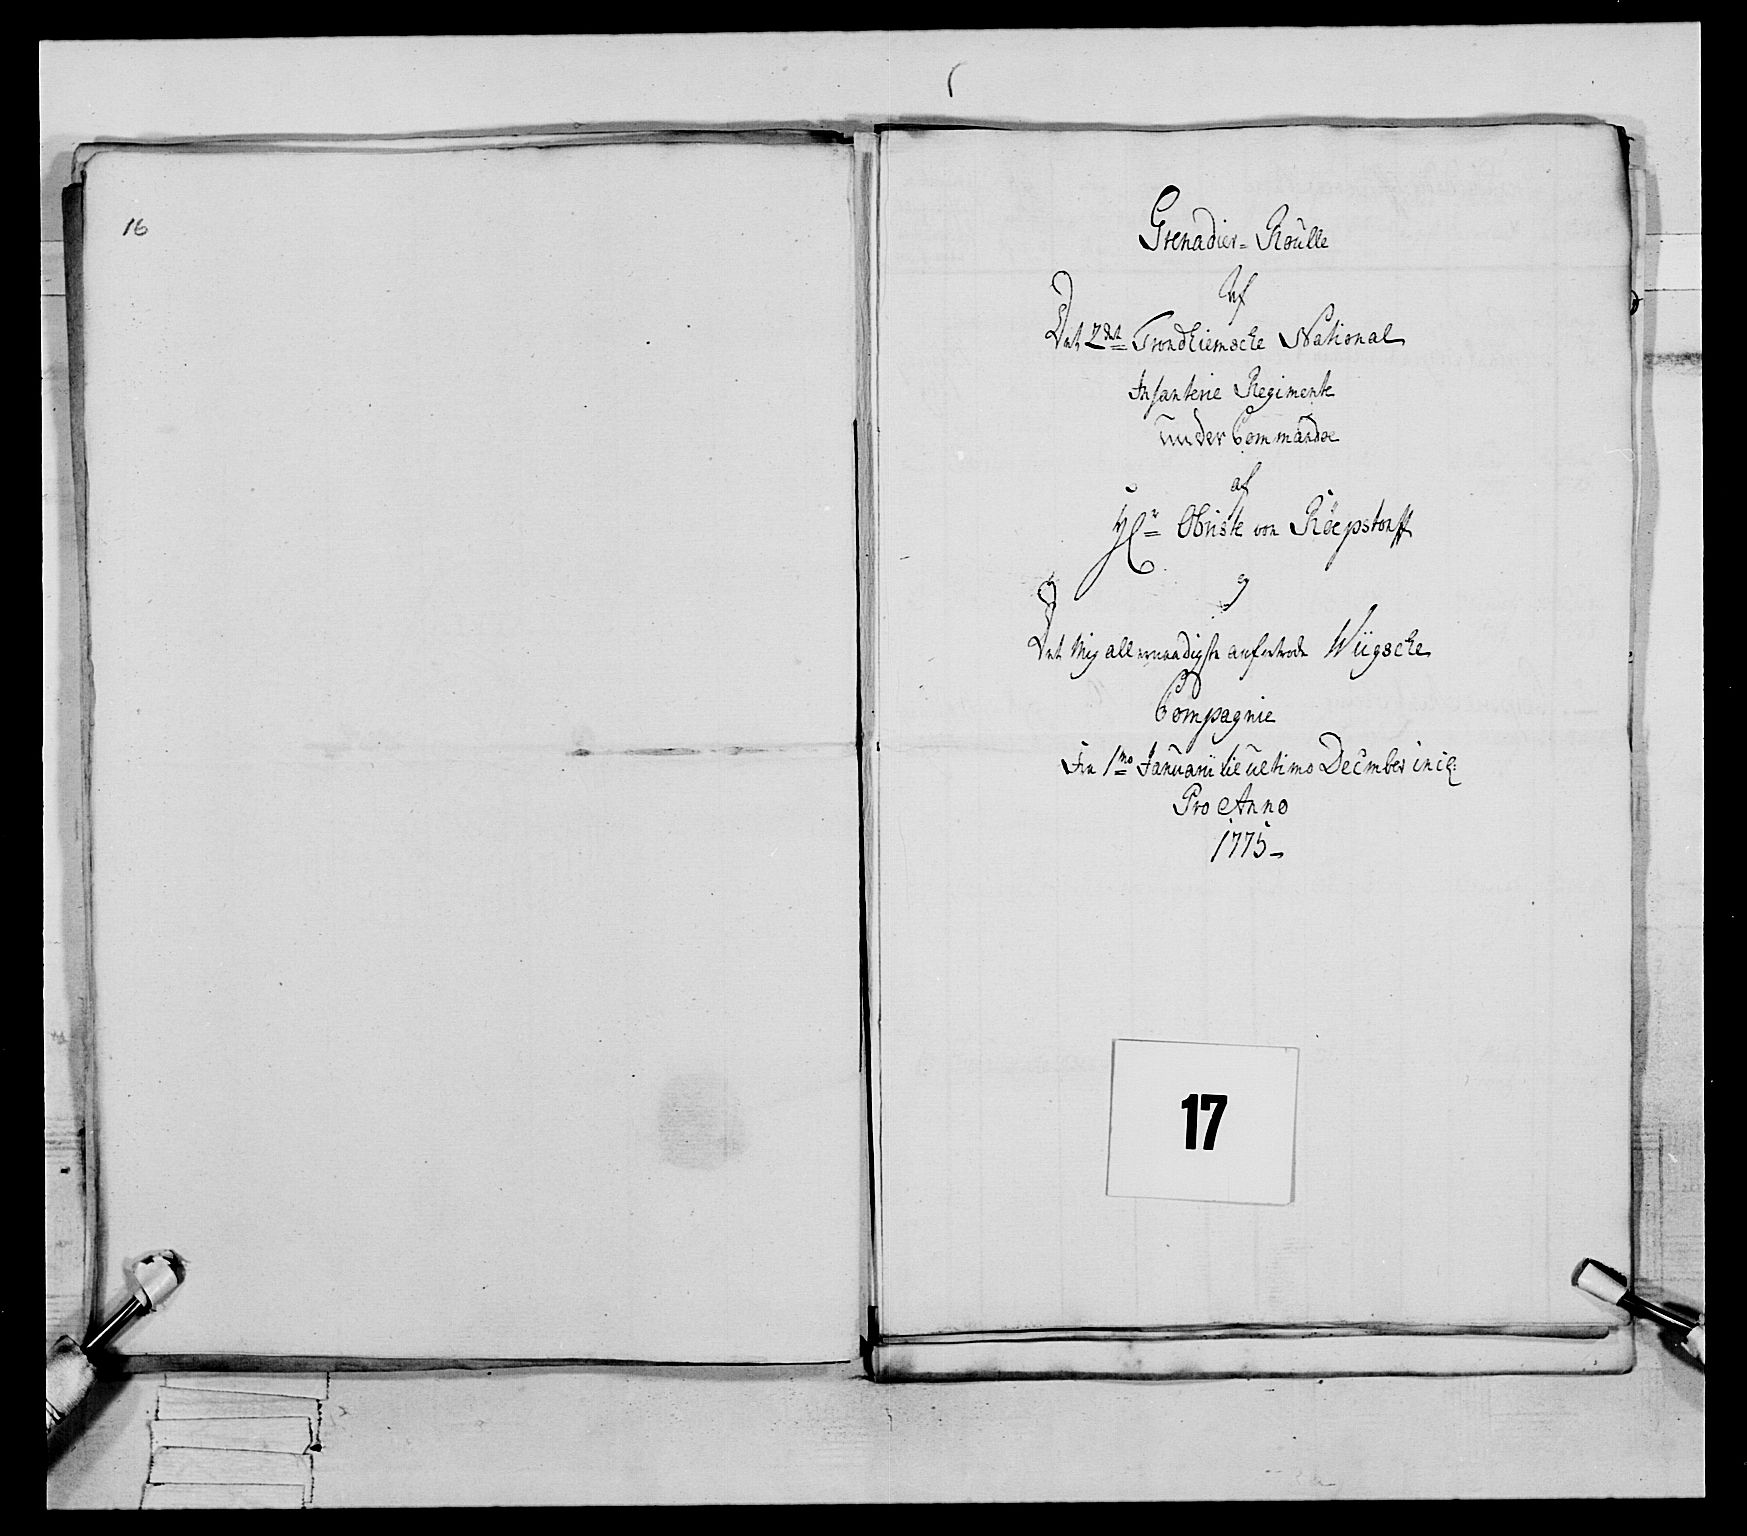 16
Grenadier-Roulle
Af
Det 2det Trondhiemsche National
Infanterie Regimente
under Commando
af
Hr Obriste von Röepstorff
og
Det Mig allernaadigste anfortrode Wügsche
Compagnie
Fra 1mo Januarii til ultimo Decmber incl:
Pro Anno
1775
17